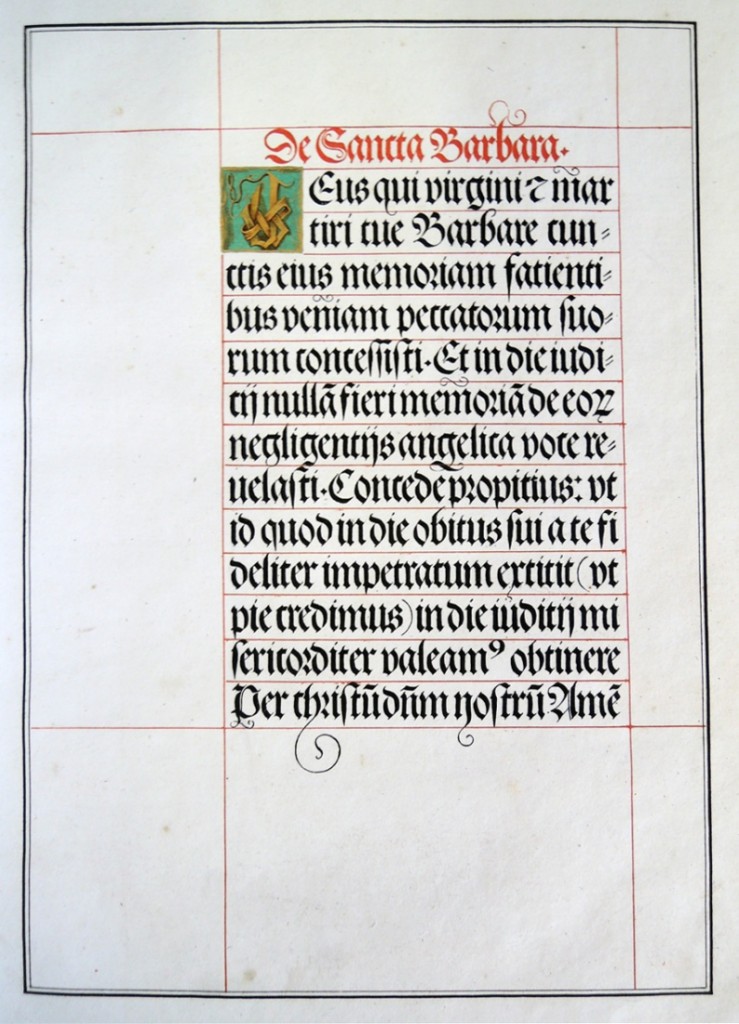 De Sancta Barbara.
DEus qui virgini ⁊ mar
tiri tue Barbare cun⸗
ctis eius memoriam facienti⸗
bus veniam peccatorum suo⸗
rum concessisti. Et in die iudi⸗
cij nullã fieri memoriã de eoꝝ
negligentijs angelica voce re⸗
uelasti. Concede propitius: vt
id quod in die obitus sui a te fi
deliter impetratum extitit (vt
pie credimus) in die iuditij mi
sericorditer valeamꝰ obtinere
Per christũ dñm nostrũ Amẽ